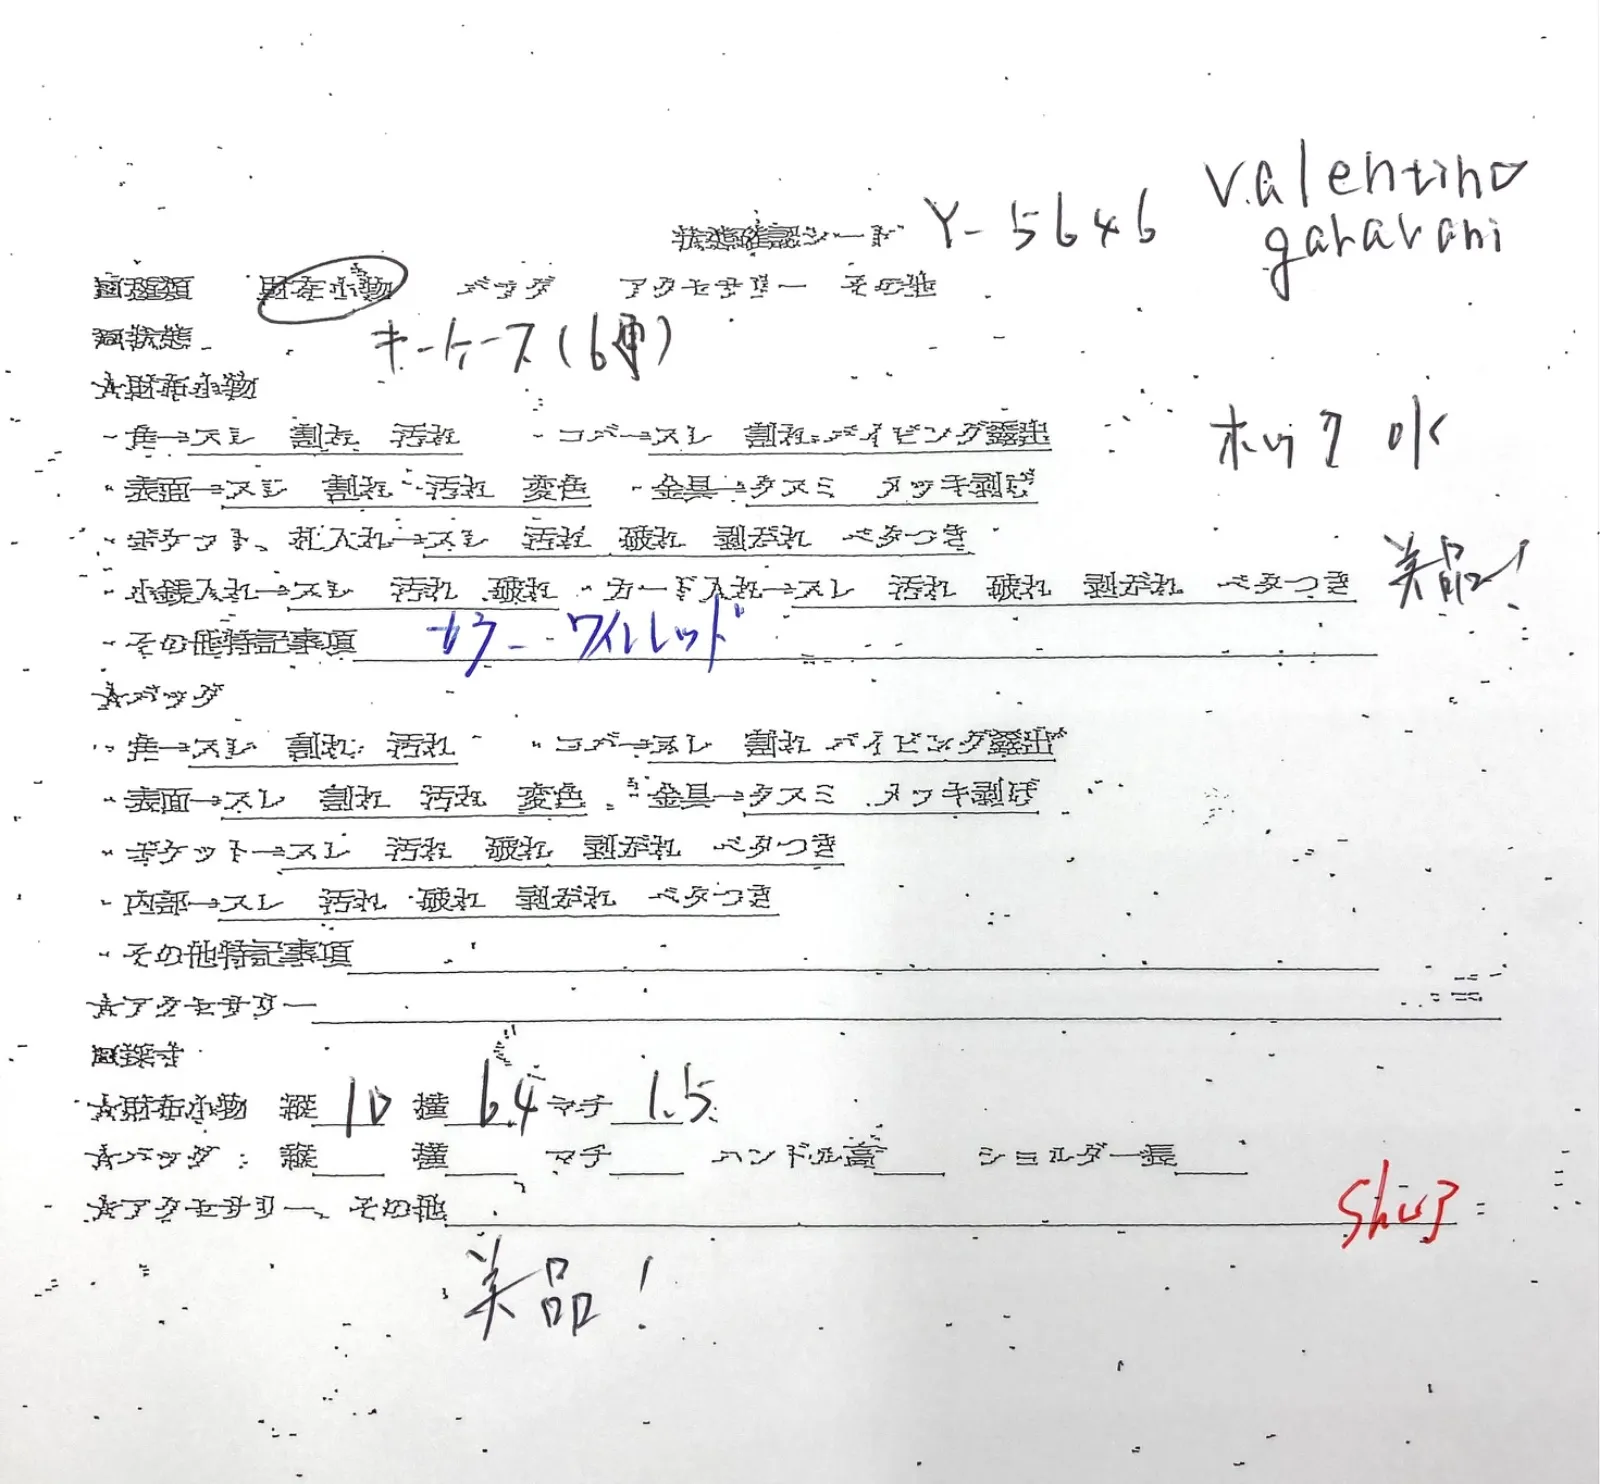 valentino
garavani
状態確認シート Y-5646
■種類 財布小物 バッグ アクセサリー その他
■状態 キーケース(6連)
★財布小物
・角→スレ 割れ 汚れ ・コバ→スレ 割れ パイピング露出
ホック OK
・表面→スレ 割れ 汚れ 変色 ・金具→クスミ メッキ剥げ
・ポケット、札入れ→スレ 汚れ 破れ 剥がれ ベタつき
美品!
・小銭入れ→スレ 汚れ 破れ ・カード入れ→スレ 汚れ 破れ 剥がれ ベタつき
・その他特記事項 カラー ワインレッド
★バッグ
・角→スレ 割れ 汚れ ・コバ→スレ 割れ パイピング露出
・表面→スレ 割れ 汚れ 変色 ・金具→クスミ メッキ剥げ
・ポケット→スレ 汚れ 破れ 剥がれ ベタつき
・内部→スレ 汚れ 破れ 剥がれ ベタつき
・その他特記事項
★アクセサリー
■採寸
★財布小物 縦 10 横 6.4 マチ 1.5
★バッグ:縦 横 マチ ハンドル高 ショルダー長
★アクセサリー、その他
美品!